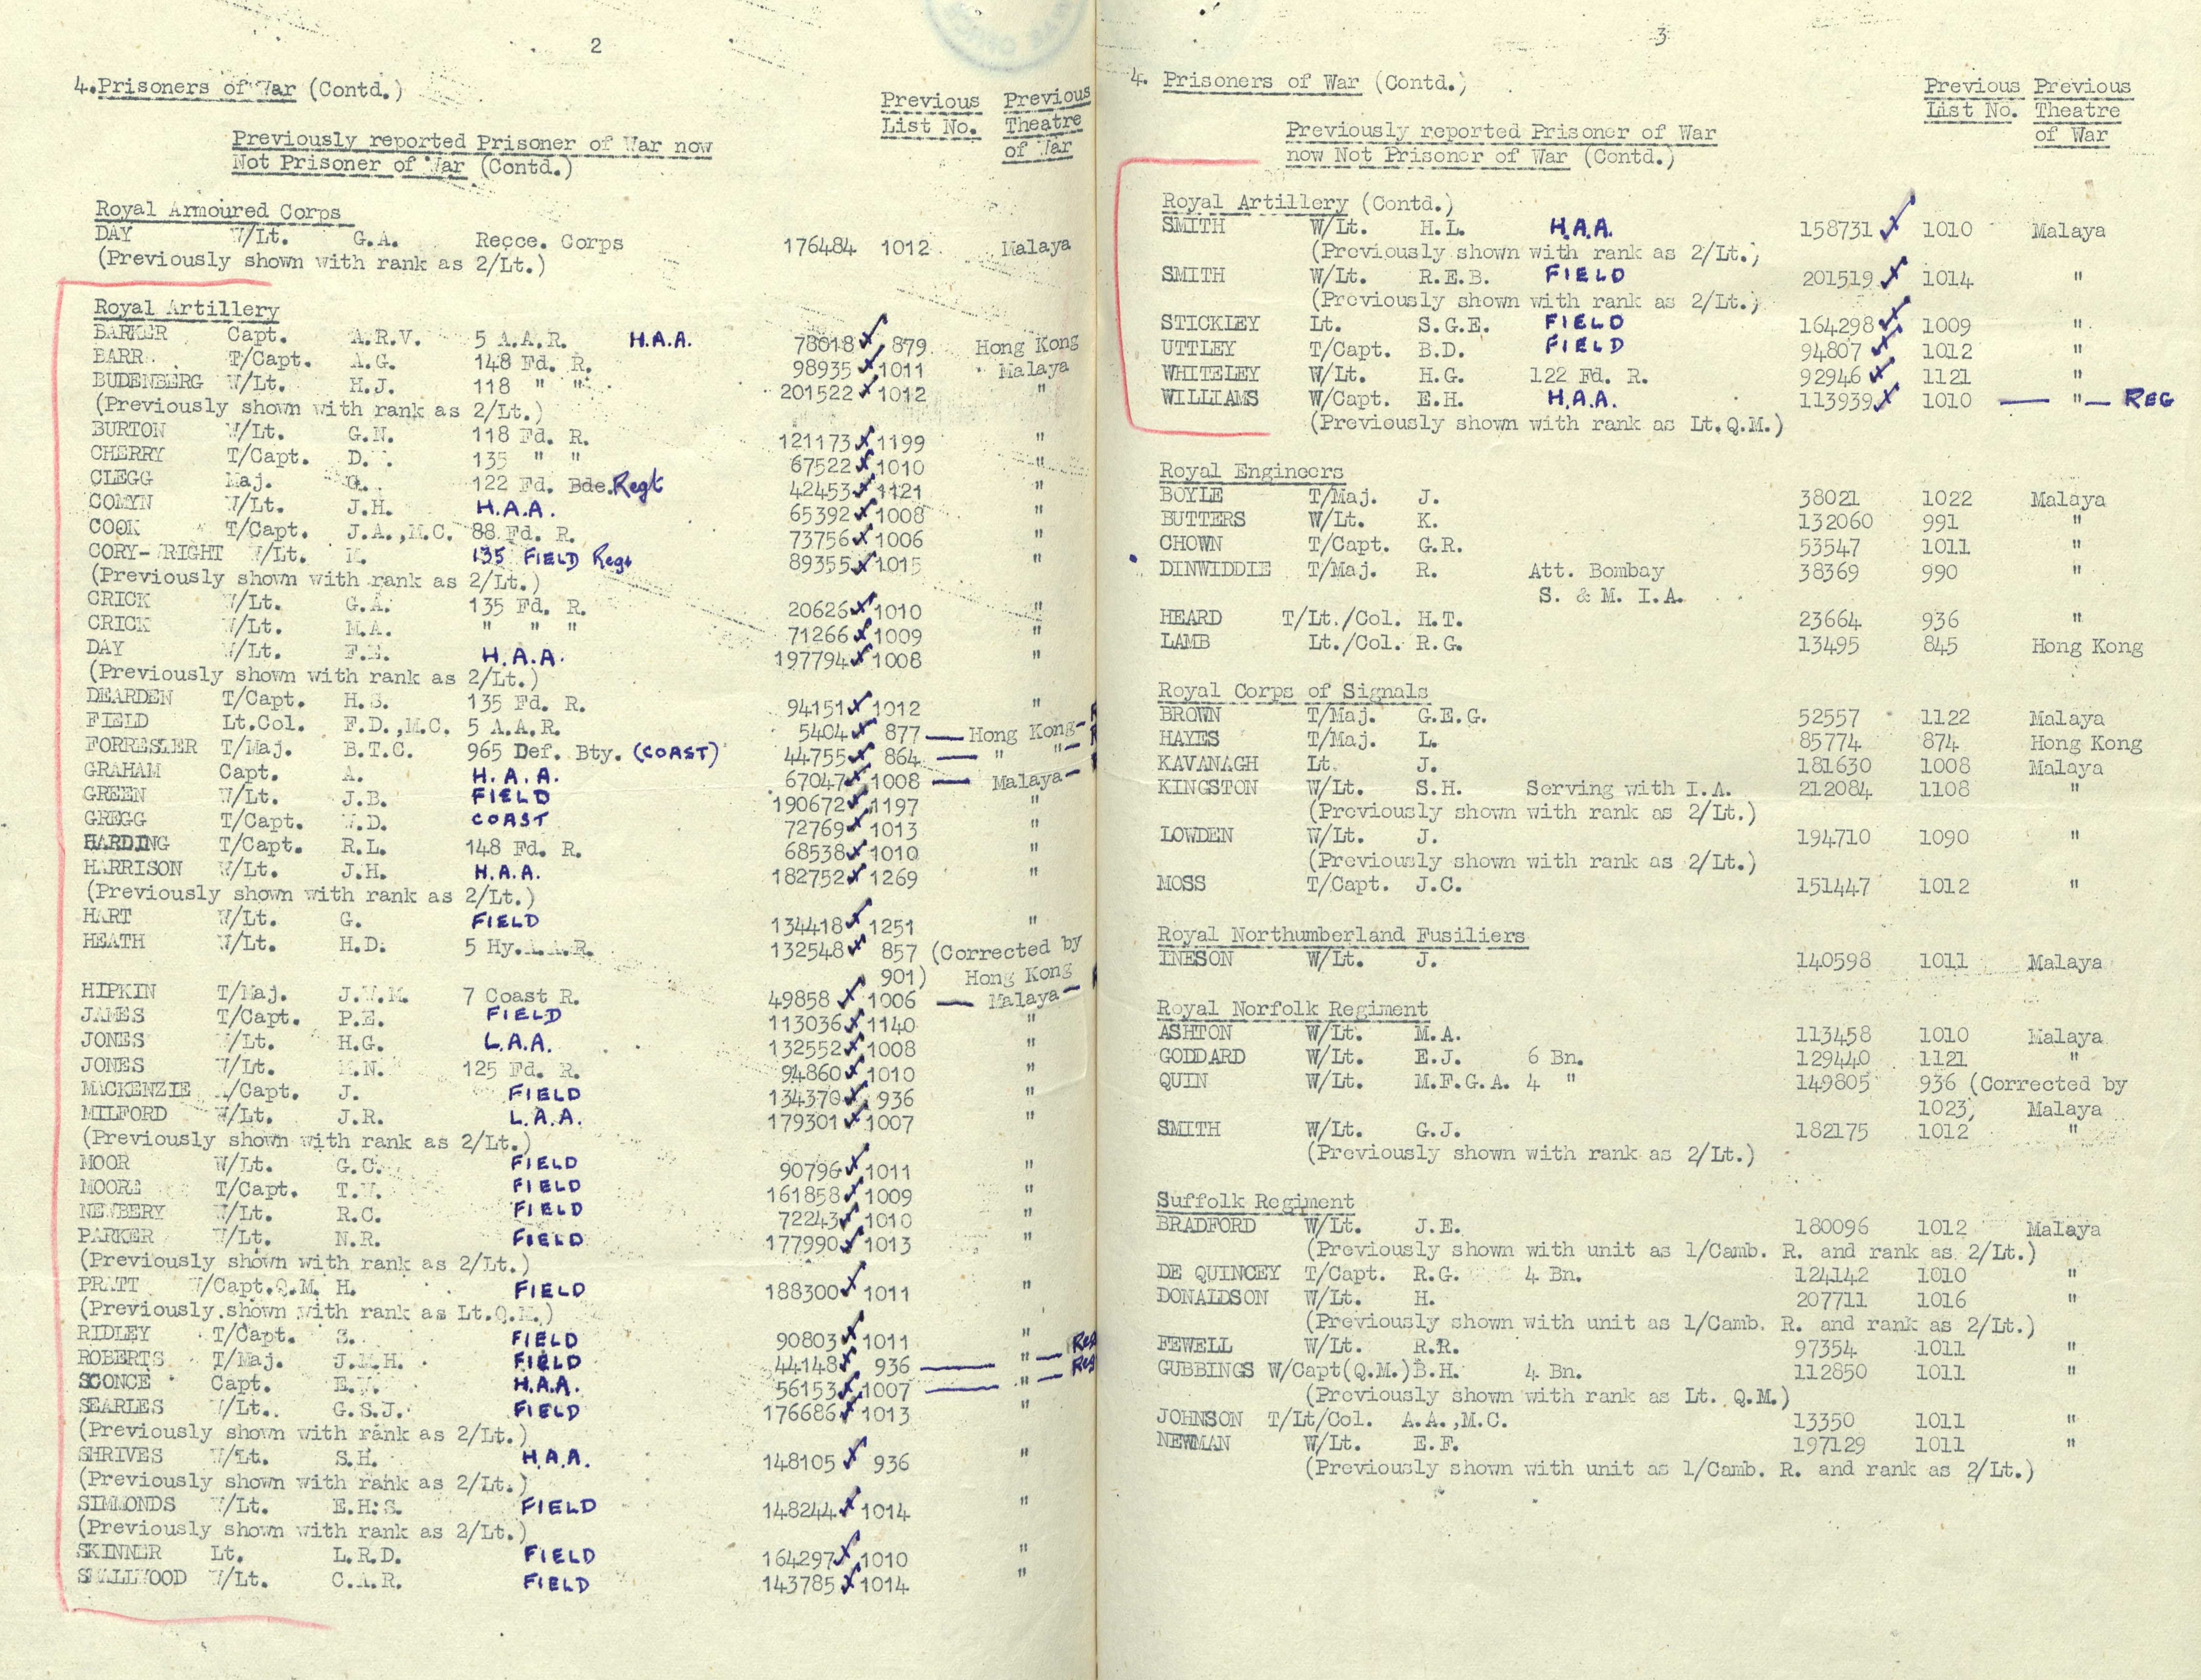 2
4.Prisoners of War (Contd.)
Previous Previous
List No. Theatre
of War
Previously reported Prisoner of War now
Not Prisoner of War (Contd.)
Royal Armoured Corps
DAY W/Lt. G.A. Recce. Corps 176484 1012 Malaya
(Previously shown with rank as 2/Lt.)
Royal Artillery
BARKER Capt. A.R.V. 5 A.A.R. H.A.A. 78018 879 Hong Kong
BARR T/Capt. A.G. 148 Fd. R. 98935 1011 Malaya
BUDENBERG W/Lt. H.J. 118 " " 201522 1012 "
(Previously shown with rank as 2/Lt.)
BURTON W/Lt. G.N. 118 Fd. R. 121173 1199 "
CHERRY T/Capt. D. 135 " " 67522 1010 "
CLEGG Maj. 122 Fd. Bde. Regt 42453 1121 "
COMYN W/Lt. J.H. H.A.A. 65392 1008 "
COOK T/Capt. J.A.,M.C. 88 Fd. R. 73756 1006 "
CORY-WRIGHT W/Lt. M. 135 FIELD Regt 89355 1015 "
(Previously shown with rank as 2/Lt.)
CRICK W/Lt. G.A. 135 Fd. R. 20626 1010 "
CRICK W/Lt. M.A. " " " 71266 1009 "
DAY W/Lt. F.E. H.A.A. 197794 1008 "
(Previously shown with rank as 2/Lt.)
DEARDEN T/Capt. H.S. 135 Fd. R. 94151 1012 "
FIELD Lt.Col. F.D.,M.C. 5 A.A.R. 5404 877 — Hong Kong —
FORRESTER T/Maj. B.T.C. 965 Def. Bty. (COAST) 44755 864 — " " —
GRAHAM Capt. A. H.A.A. 67047 1008 — Malaya —
GREEN W/Lt. J.B. FIELD 190672 1197 "
GREGG T/Capt. W.D. COAST 72769 1013 "
HARDING T/Capt. R.L. 148 Fd. R. 68538 1010 "
HARRISON W/Lt. J.H. H.A.A. 182752 1269 "
(Previously shown with rank as 2/Lt.)
HART W/Lt. G. FIELD 134418 1251 "
HEATH W/Lt. H.D. 5 Hy.A.A.R. 132548 857 (Corrected by
901) Hong Kong
HIPKIN T/Maj. J.W.M. 7 Coast R. 49858 1006 — Malaya —
JAMES T/Capt. P.E. FIELD 113036 1140 "
JONES W/Lt. H.G. L.A.A. 132552 1008 "
JONES W/Lt. K.N. 125 Fd. R. 94860 1010 "
MACKENZIE A/Capt. J. FIELD 134370 936 "
MILFORD W/Lt. J.R. L.A.A. 179301 1007 "
(Previously shown with rank as 2/Lt.)
MOOR W/Lt. G.C. FIELD 90796 1011 "
MOORE T/Capt. T.W. FIELD 161858 1009 "
NEWBERY W/Lt. R.C. FIELD 72243 1010 "
PARKER W/Lt. N.R. FIELD 177990 1013 "
(Previously shown with rank as 2/Lt.)
PRATT W/Capt.Q.M. H. FIELD 188300 1011 "
(Previously shown with rank as Lt.Q.M.)
RIDLEY T/Capt. S. FIELD 90803 1011 "
ROBERTS T/Maj. J.M.H. FIELD 44148 936 — " — Reg
SCONCE Capt. E.W. H.A.A. 56153 1007 — " — Reg
SEARLES W/Lt. G.S.J. FIELD 176686 1013 "
(Previously shown with rank as 2/Lt.)
SHRIVES W/Lt. S.H. H.A.A. 148105 936 "
(Previously shown with rank as 2/Lt.)
SIMMONDS W/Lt. E.H.S. FIELD 148244 1014 "
(Previously shown with rank as 2/Lt.)
SKINNER Lt. L.R.D. FIELD 164297 1010 "
SMALLWOOD W/Lt. C.A.R. FIELD 143785 1014 "
3
4. Prisoners of War (Contd.)
Previous Previous
List No. Theatre
of War
Previously reported Prisoner of War
now Not Prisoner of War (Contd.)
Royal Artillery (Contd.)
SMITH W/Lt. H.L. H.A.A. 158731 1010 Malaya
(Previously shown with rank as 2/Lt.)
SMITH W/Lt. R.E.B. FIELD 201519 1014 "
(Previously shown with rank as 2/Lt.)
STICKLEY Lt. S.G.E. FIELD 164298 1009 "
UTTLEY T/Capt. B.D. FIELD 94807 1012 "
WHITELEY W/Lt. H.G. 122 Fd. R. 92946 1121 "
WILLIAMS W/Capt. E.H. H.A.A. 113939 1010 — " — REG
(Previously shown with rank as Lt.Q.M.)
Royal Engineers
BOYLE T/Maj. J. 38021 1022 Malaya
BUTTERS W/Lt. K. 132060 991 "
CHOWN T/Capt. G.R. 53547 1011 "
DINWIDDIE T/Maj. R. Att. Bombay 38369 990 "
S. & M. I.A.
HEARD T/Lt./Col. H.T. 23664 936 "
LAMB Lt./Col. R.G. 13495 845 Hong Kong
Royal Corps of Signals
BROWN T/Maj. G.E.G. 52557 1122 Malaya
HAYES T/Maj. L. 85774 874 Hong Kong
KAVANAGH Lt. J. 181630 1008 Malaya
KINGSTON W/Lt. S.H. Serving with I.A. 212084 1108 "
(Previously shown with rank as 2/Lt.)
LOWDEN W/Lt. J. 194710 1090 "
(Previously shown with rank as 2/Lt.)
MOSS T/Capt. J.C. 151447 1012 "
Royal Northumberland Fusiliers
INESON W/Lt. J. 140598 1011 Malaya
Royal Norfolk Regiment
ASHTON W/Lt. M.A. 113458 1010 Malaya
GODDARD W/Lt. E.J. 6 Bn. 129440 1121 "
QUIN W/Lt. M.F.G.A. 4 " 149805 936 (Corrected by
1023) Malaya
SMITH W/Lt. G.J. 182175 1012 "
(Previously shown with rank as 2/Lt.)
Suffolk Regiment
BRADFORD W/Lt. J.E. 180096 1012 Malaya
(Previously shown with unit as 1/Camb. R. and rank as 2/Lt.)
DE QUINCEY T/Capt. R.G. 4 Bn. 124142 1010 "
DONALDSON W/Lt. H. 207711 1016 "
(Previously shown with unit as 1/Camb. R. and rank as 2/Lt.)
FEWELL W/Lt. R.R. 97354 1011 "
GUBBINGS W/Capt(Q.M.) B.H. 4 Bn. 112850 1011 "
(Previously shown with rank as Lt. Q.M.)
JOHNSON T/Lt/Col. A.A.,M.C. 13350 1011 "
NEWMAN W/Lt. E.F. 197129 1011 "
(Previously shown with unit as 1/Camb. R. and rank as 2/Lt.)